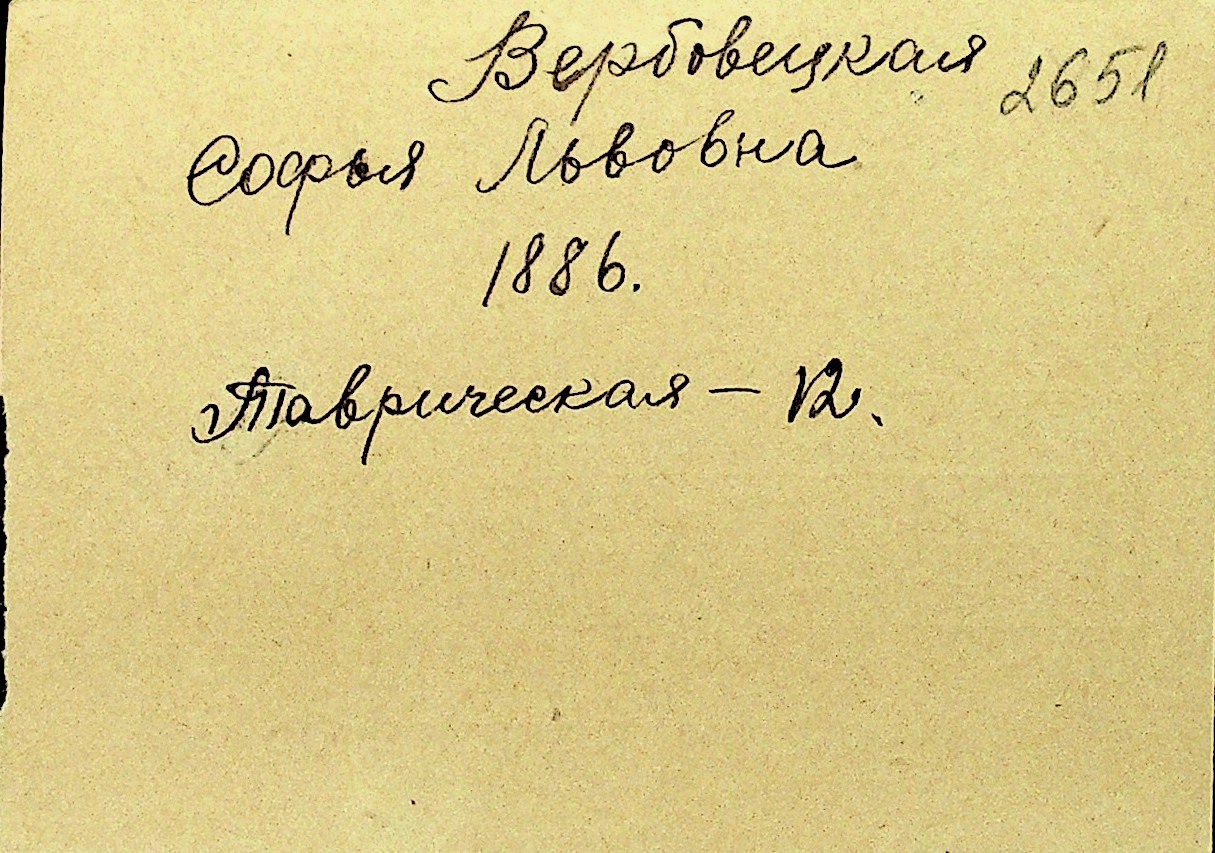 Вербовецкая 2651
Софья Львовна
1886.
Таврическая – 12.